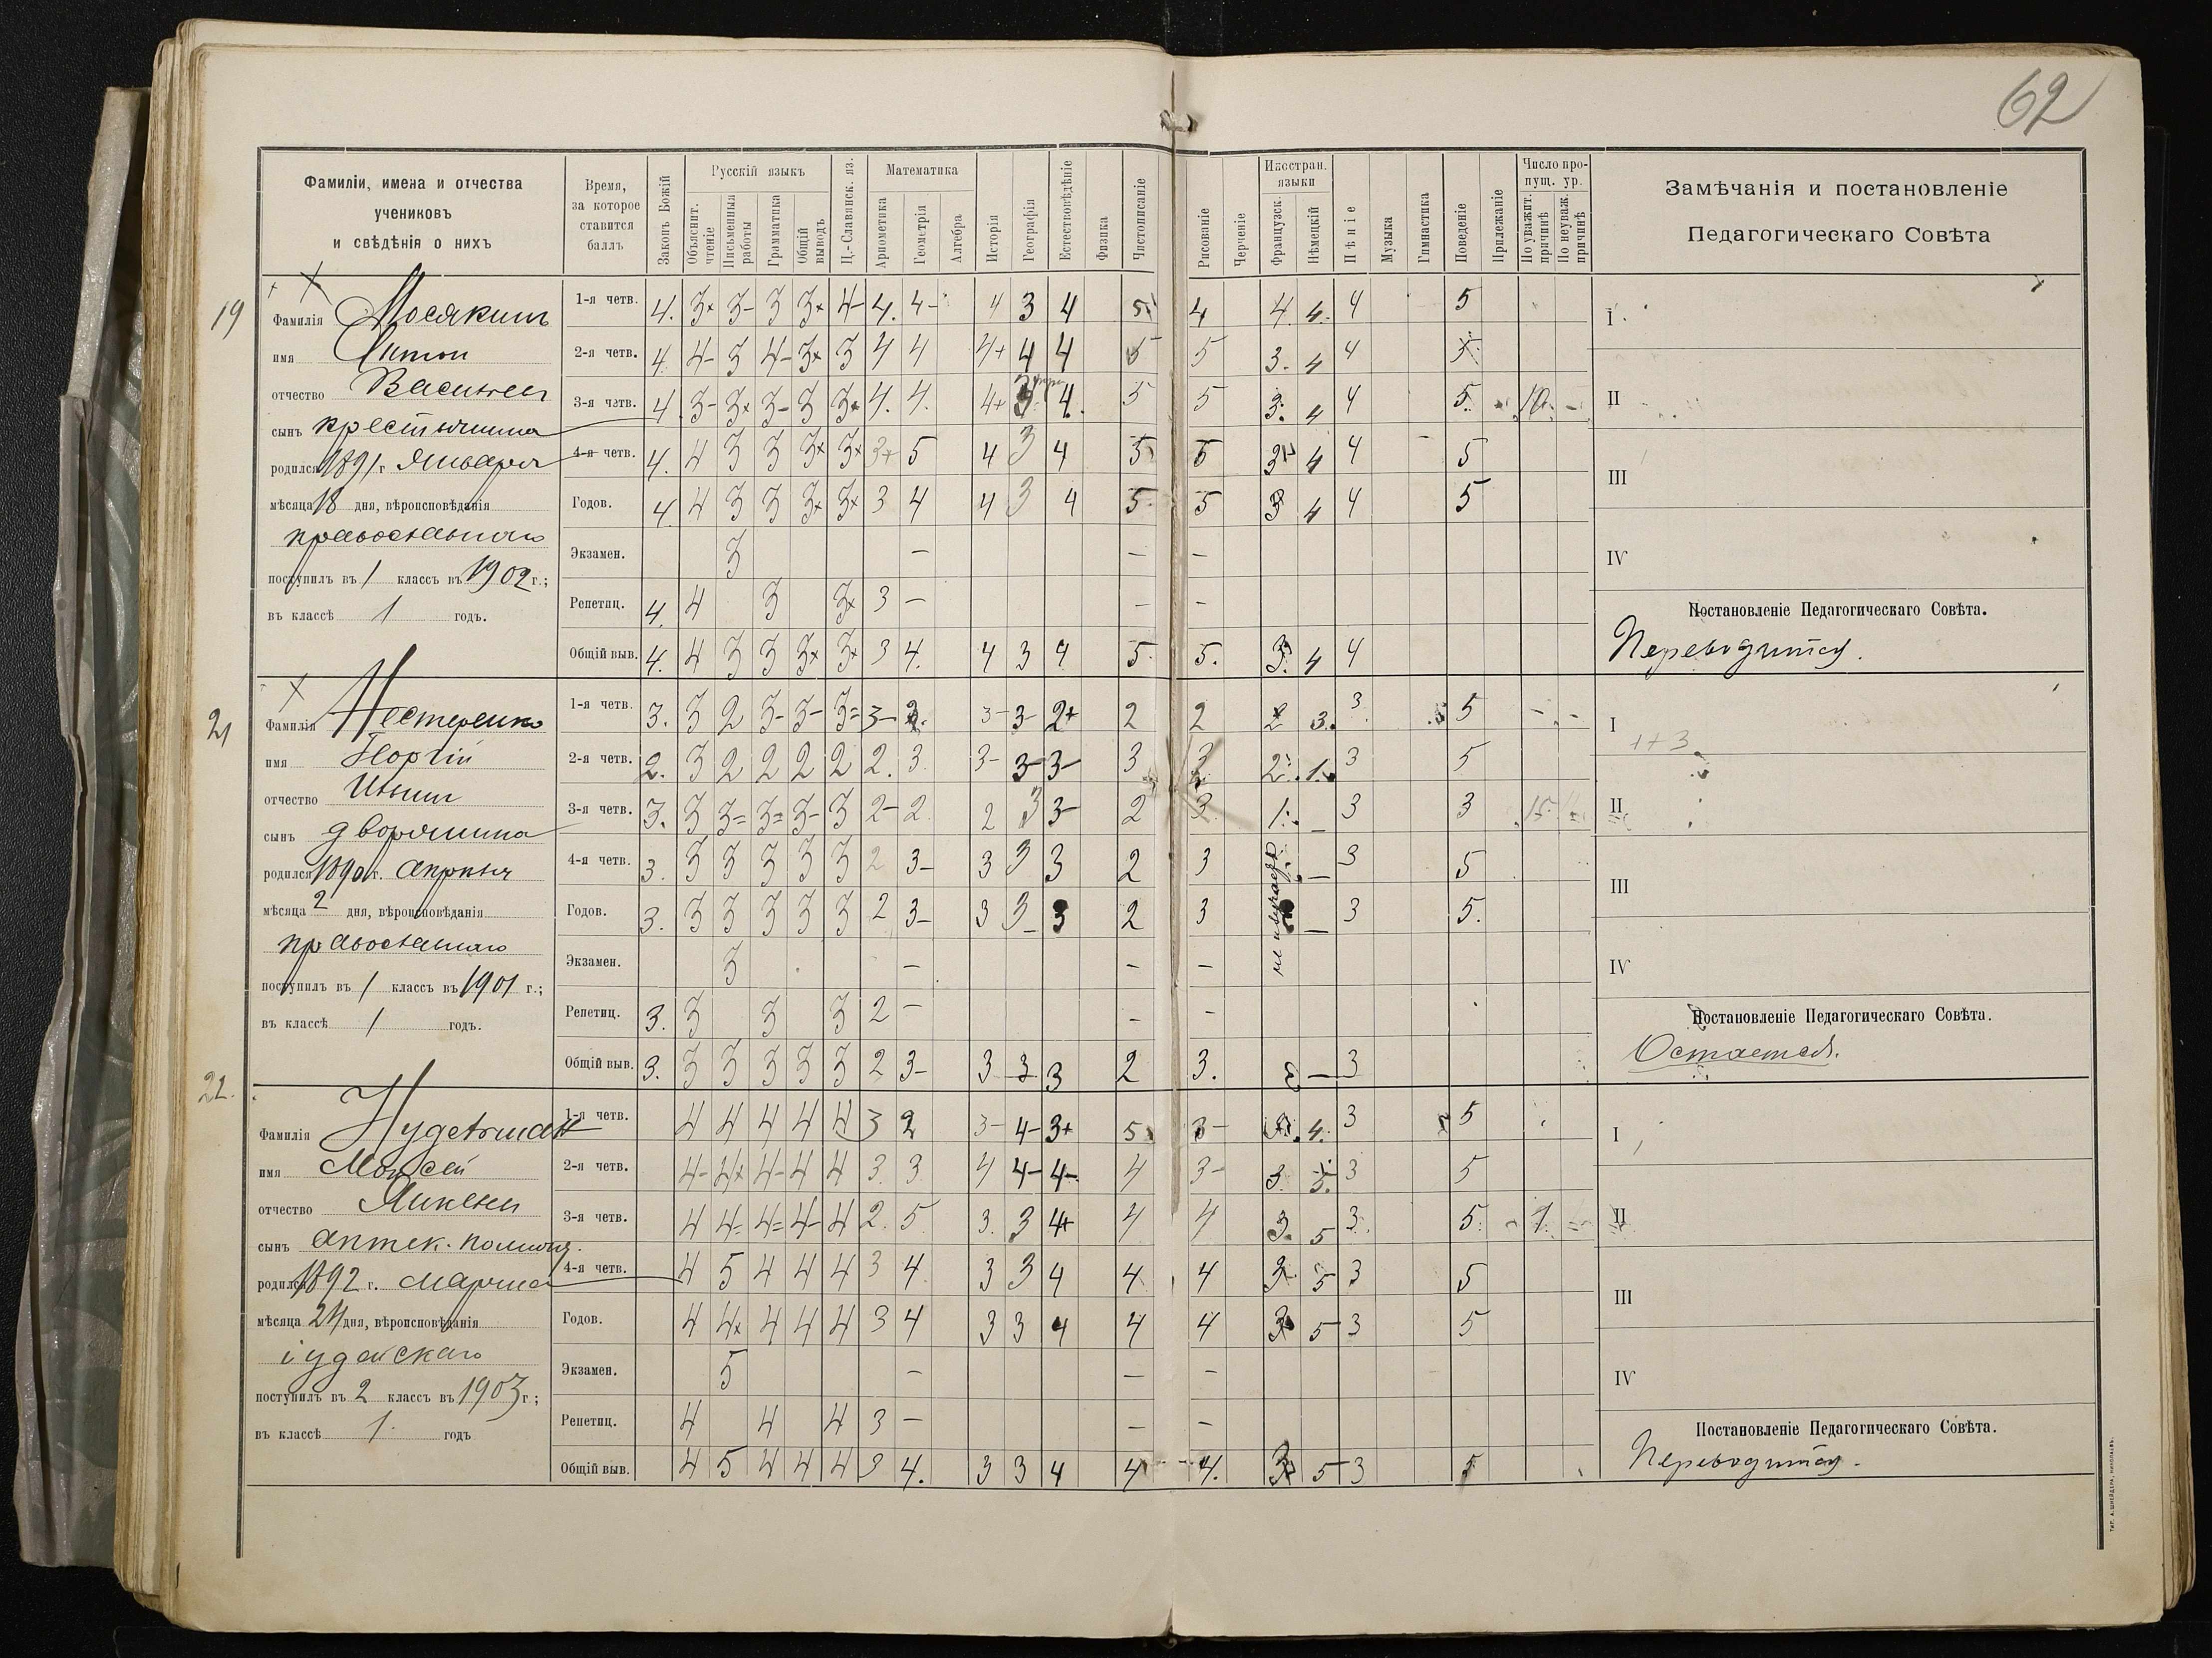 62
Фамиліи, имена и отчества
учениковъ
и свѣдѣнія о нихъ
Время,
за которое
ставится
баллъ
Законъ Божій
Русскій языкъ
Объяснит. чтеніе
Письменныя работы
Грамматика
Общій выводъ
Ц.-Славянск. яз.
Математика
Ариѳметика
Геометрія
Алгебра
Исторія
Географія
Естествовѣдѣніе
Физика
Чистописаніе
Рисованіе
Черченіе
Иностран. языки
Французск.
Нѣмецкій
Пѣніе
Музыка
Гимнастика
Поведеніе
Прилежаніе
Число пропущ. ур.
По уважит. причинѣ
По неуваж. причинѣ
Замѣчанія и постановленіе
Педагогическаго Совѣта
19
Фамилія Мосякинъ
имя Антон
отчество Васильев
сынъ крестьянина
родился 1891 г. Января
мѣсяца 18 дня, вѣроисповѣданія
православнаго
поступилъ въ 1 классъ въ 1902 г.;
въ классѣ 1 годъ.
1-я четв. 4. 3+ 3- 3 3+ 4- 4. 4- 4 3 4 5 4 4. 4. 4 5
2-я четв. 4 4- 3 4- 3+ 3 4 4 4+ 4 4 5 5 3. 4 4 5
3-я четв. 4. 3- 3+ 3- 3 3+ 4. 4. 4+ 3 4. 5 5 3. 4 4 5.
4-я четв. 4. 4 3 3 3+ 3+ 3+ 5 4 3 4 5 5 3 4 4 5
Годов. 4. 4 3 3 3+ 3+ 3 4 4 3 4 5 5 3 4 4 5
Экзамен. 3 — — —
Репетиц. 4. 4 3 3+ 3 — — —
Общій выв. 4. 4 3 3 3+ 3+ 3 4. 4 3 4 5. 5. 3. 4 4
I
II
III
IV
Постановленіе Педагогическаго Совѣта.
Переводится.
21
Фамилія Нестеренко
имя Георгій
отчество Ильин
сынъ дворянина
родился 1890 г. Апрѣля
мѣсяца 2 дня, вѣроисповѣданія
православнаго
поступилъ въ 1 классъ въ 1901 г.;
въ классѣ 1 годъ.
1-я четв. 3. 3 2 3- 3- 3= 3- 2. 3- 3- 2+ 2 2 2 3. 3. 5 - -
2-я четв. 2. 3 2 2 2 2 2. 3. 3- 3- 3- 3 2. 1. 3 5
3-я четв. 3. 3 3= 3= 3- 3 2- 2. 2 3 3- 2 3. 1. — 3 3 15.
4-я четв. 3. 3 3 3 3 3 2 3- 3 3 3 2 3 — 3 5
Годов. 3. 3 3 3 3 3 2 3- 3 3 3 2 3 — 3 5.
Экзамен. 3 — — —
Репетиц. 3. 3 3 3 2 — — —
Общій выв. 3. 3 3 3 3 3 2 3- 3 3 3 2 3. — 3
I
1+3
II
III
IV
Постановленіе Педагогическаго Совѣта.
Остается.
22.
Фамилія Нудельман
имя Моисей
отчество
сынъ Аптек. помощ.
родился 1892 г. Марта
мѣсяца 24 дня, вѣроисповѣданія
іудейскаго
поступилъ въ 2 классъ въ 1903 г.;
въ классѣ 1. годъ
1-я четв. 4 4 4 4 4 3 2 3- 4- 3+ 5 3- 4. 3 5
2-я четв. 4- 4+ 4- 4 4 3. 3. 4 4- 4- 4 3- 3. 5. 3 5
3-я четв. 4 4- 4= 4- 4 2. 5. 3. 3 4+ 4 4 3. 5 3. 5.
4-я четв. 4 5 4 4 4 3 4 3 3 4 4 4 3 5 3 5
Годов. 4 4+ 4 4 4 3 4 3 3 4 4 4 3 5 3 5
Экзамен. 5 — — —
Репетиц. 4 4 4 3 — — —
Общій выв. 4 5 4 4 4 3 4. 3 3 4 4 4. 3 5 3 5
I
II
III
IV
Постановленіе Педагогическаго Совѣта.
Переводится.
ТИП. А. ШНЕЙДЕРА, НИКОЛАЕВЪ.